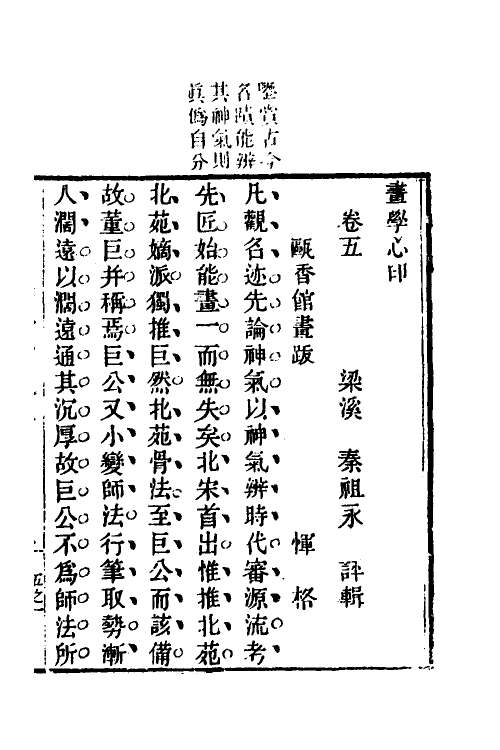 鑒賞古今
名蹟能辨
其神氣則
真僞自分
畫學心印
卷五　梁溪　秦祖永　評輯
甌香館畫跋　惲格
凡觀名迹先論神氣以神氣辨時代審源流考
先匠始能畫一而無失矣北宋首出惟推北苑
北苑嫡派獨推巨然北苑骨法至巨公而該備
故董巨并稱焉巨公又小變師法行筆取勢漸
人濶遠以濶遠通其沉厚故巨公不爲師法所
五之一